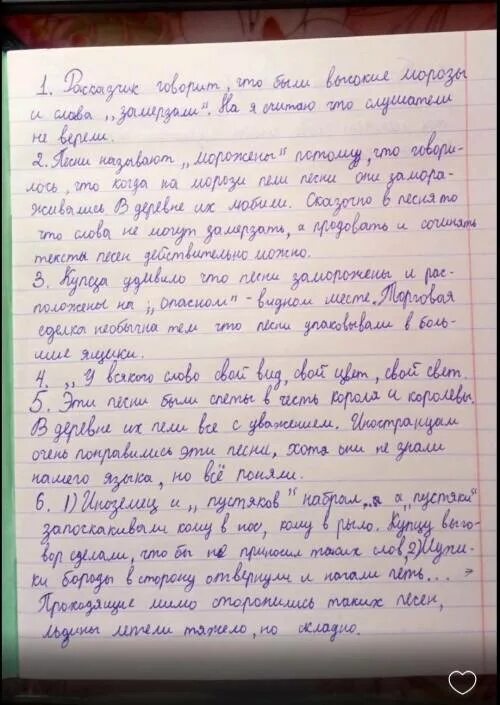 1. Рассказчик говорит, что были высокие морозы
и слова „замерзали". На я считаю что слушатели
не верели.
2. Песни называют „морожены" потому, что говори-
лось, что когда на морози пели песни они замора-
живались. В деревне их любили. Сказочно в песня то
что слова не могут замерзать, а продовать и сочинять
тексты песен действительно можно.
3. Купца удивило что песни заморожены и рас-
положены на „опасном" - видном месте. Торговая
сделка необычна тем что песни упаковывали в боль-
шие ящики.
4. „У всякого слово свой вид, свой цвет, свой свет.
5. Эти песни были спеты в честь короля и королевы.
В деревне их пели все с уважением. Иностранцам
очень понравились эти песни, хотя они не знали
нашего языка, но всё поняли.
6. 1) Иноземец и „пустяков" набрал, а „пустяки"
запоскакивали кому в нос, кому в рыло. Купцу выго-
вор сделали, что бы не приносил таких слов. 2)
бороды в сторону отвернули и начали петь...
Проходящие мимо сторонились таких песен,
льдины летели тяжело, но складно.